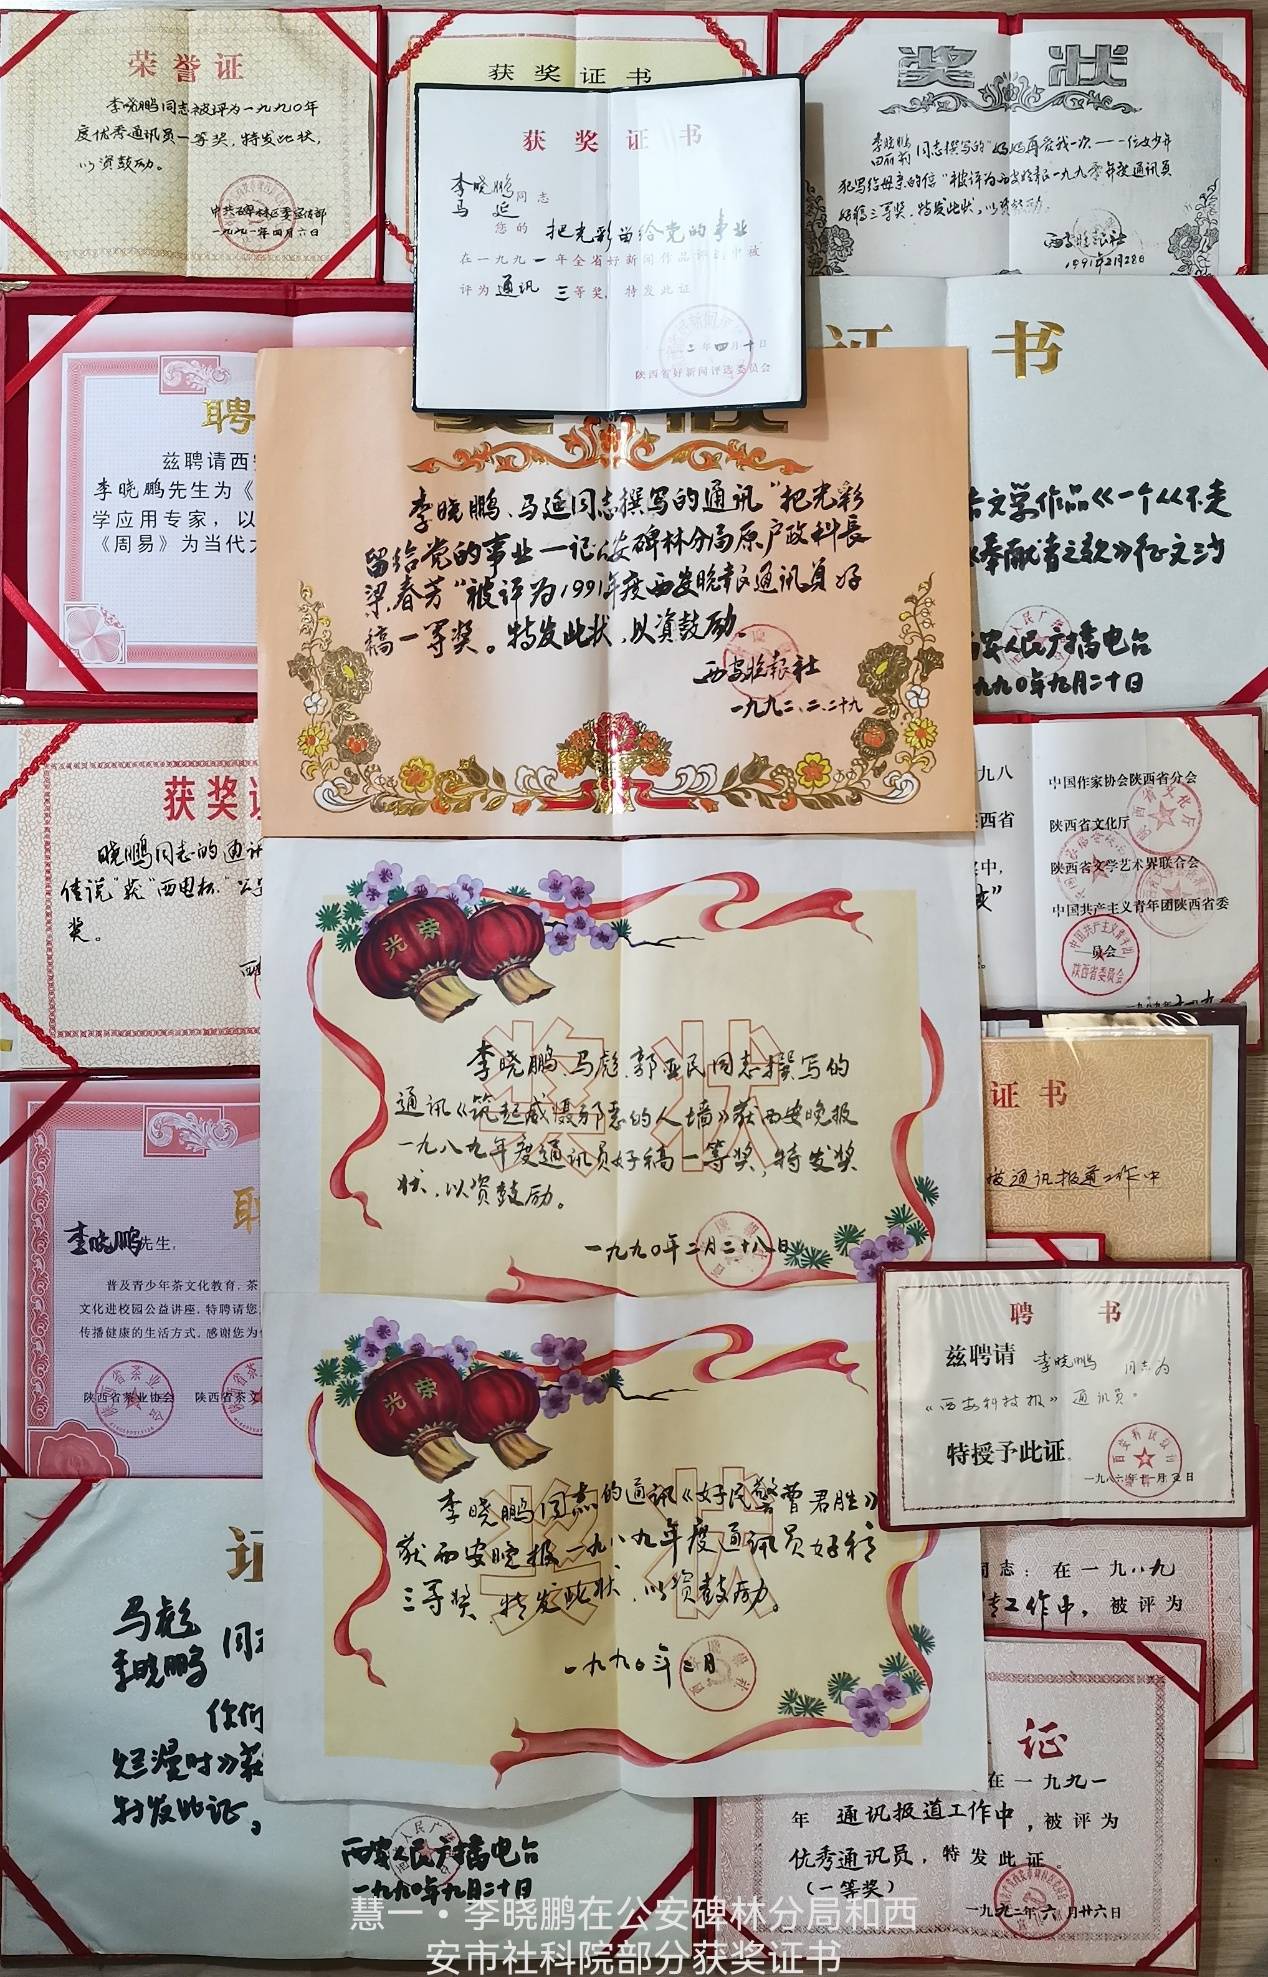 荣誉证
李晓鹏同志被评为一九九〇年
度优秀通讯员一等奖，特发此状，
以资鼓励。
中共碑林区委宣传部
一九九一年四月六日
获奖证书
获奖证书
李晓鹏
马延
同志
您的 把光彩留给党的事业
在一九九一年全省好新闻作品评选中被
评为通讯 三等奖，特发此证
二年四月十日
陕西省好新闻评选委员会
奖状
李晓鹏
同志撰写的“妈妈再爱我一次——一位女少年
犯写给母亲的信”被评为西安晚报一九九零年度通讯员
好稿三等奖，特发此状，以资鼓励。
西安晚报社
1991年2月28日
聘
兹聘请西安
李晓鹏先生为《
学应用专家，以
《周易》为当代
奖状
李晓鹏、马延同志撰写的通讯“把光彩
留给党的事业—记公安碑林分局原户政科长
梁春芳”被评为1991年度西安晚报通讯员好
稿一等奖。特发此状，以资鼓励。
西安晚报社
一九九二、二、二十九
证书
文学作品《一个《不走
《奉献者之歌》征文三
西安人民广播电台
一九九〇年九月二十日
获奖证
晓鹏同志的通讯
佳说”获“西电杯”
奖。
九八
陕西省
中国作家协会陕西省分会
陕西省文化厅
陕西省文学艺术界联合会
中国共产主义青年团陕西省委
员会
光荣
奖状
李晓鹏、马彪、郭亚民同志撰写的
通讯《筑起威慑邪恶的人墙》获西安晚报
一九八九年度通讯员好稿一等奖，特发奖
状，以资鼓励。
一九九〇年二月二十八日
证书
通讯报道工作中
李晓鹏先生，
普及青少年茶文化教育，茶
文化进校园公益讲座，特聘请您
传播健康的生活方式，感谢您为
陕西省茶业协会 陕西省茶文
聘书
兹聘请 李晓鹏 同志为
《西安科技报》通讯员。
特授予此证
光荣
奖状
李晓鹏同志的通讯《好民警曹君胜》
获西安晚报一九八九年度通讯员好稿
三等奖，特发此状，以资鼓励。
一九九〇年二月
同志：在一九八九
工作中，被评为
证
马彪
李晓鹏
同志
你们
烂漫时》获
特发此证，
西安人民广播电台
一九九〇年九月二十日
证
在一九九一
年 通讯报道工作中，被评为
优秀通讯员，特发此证。
（一等奖）
一九九二年六月廿六日
慧一·李晓鹏在公安碑林分局和西
安市社科院部分获奖证书